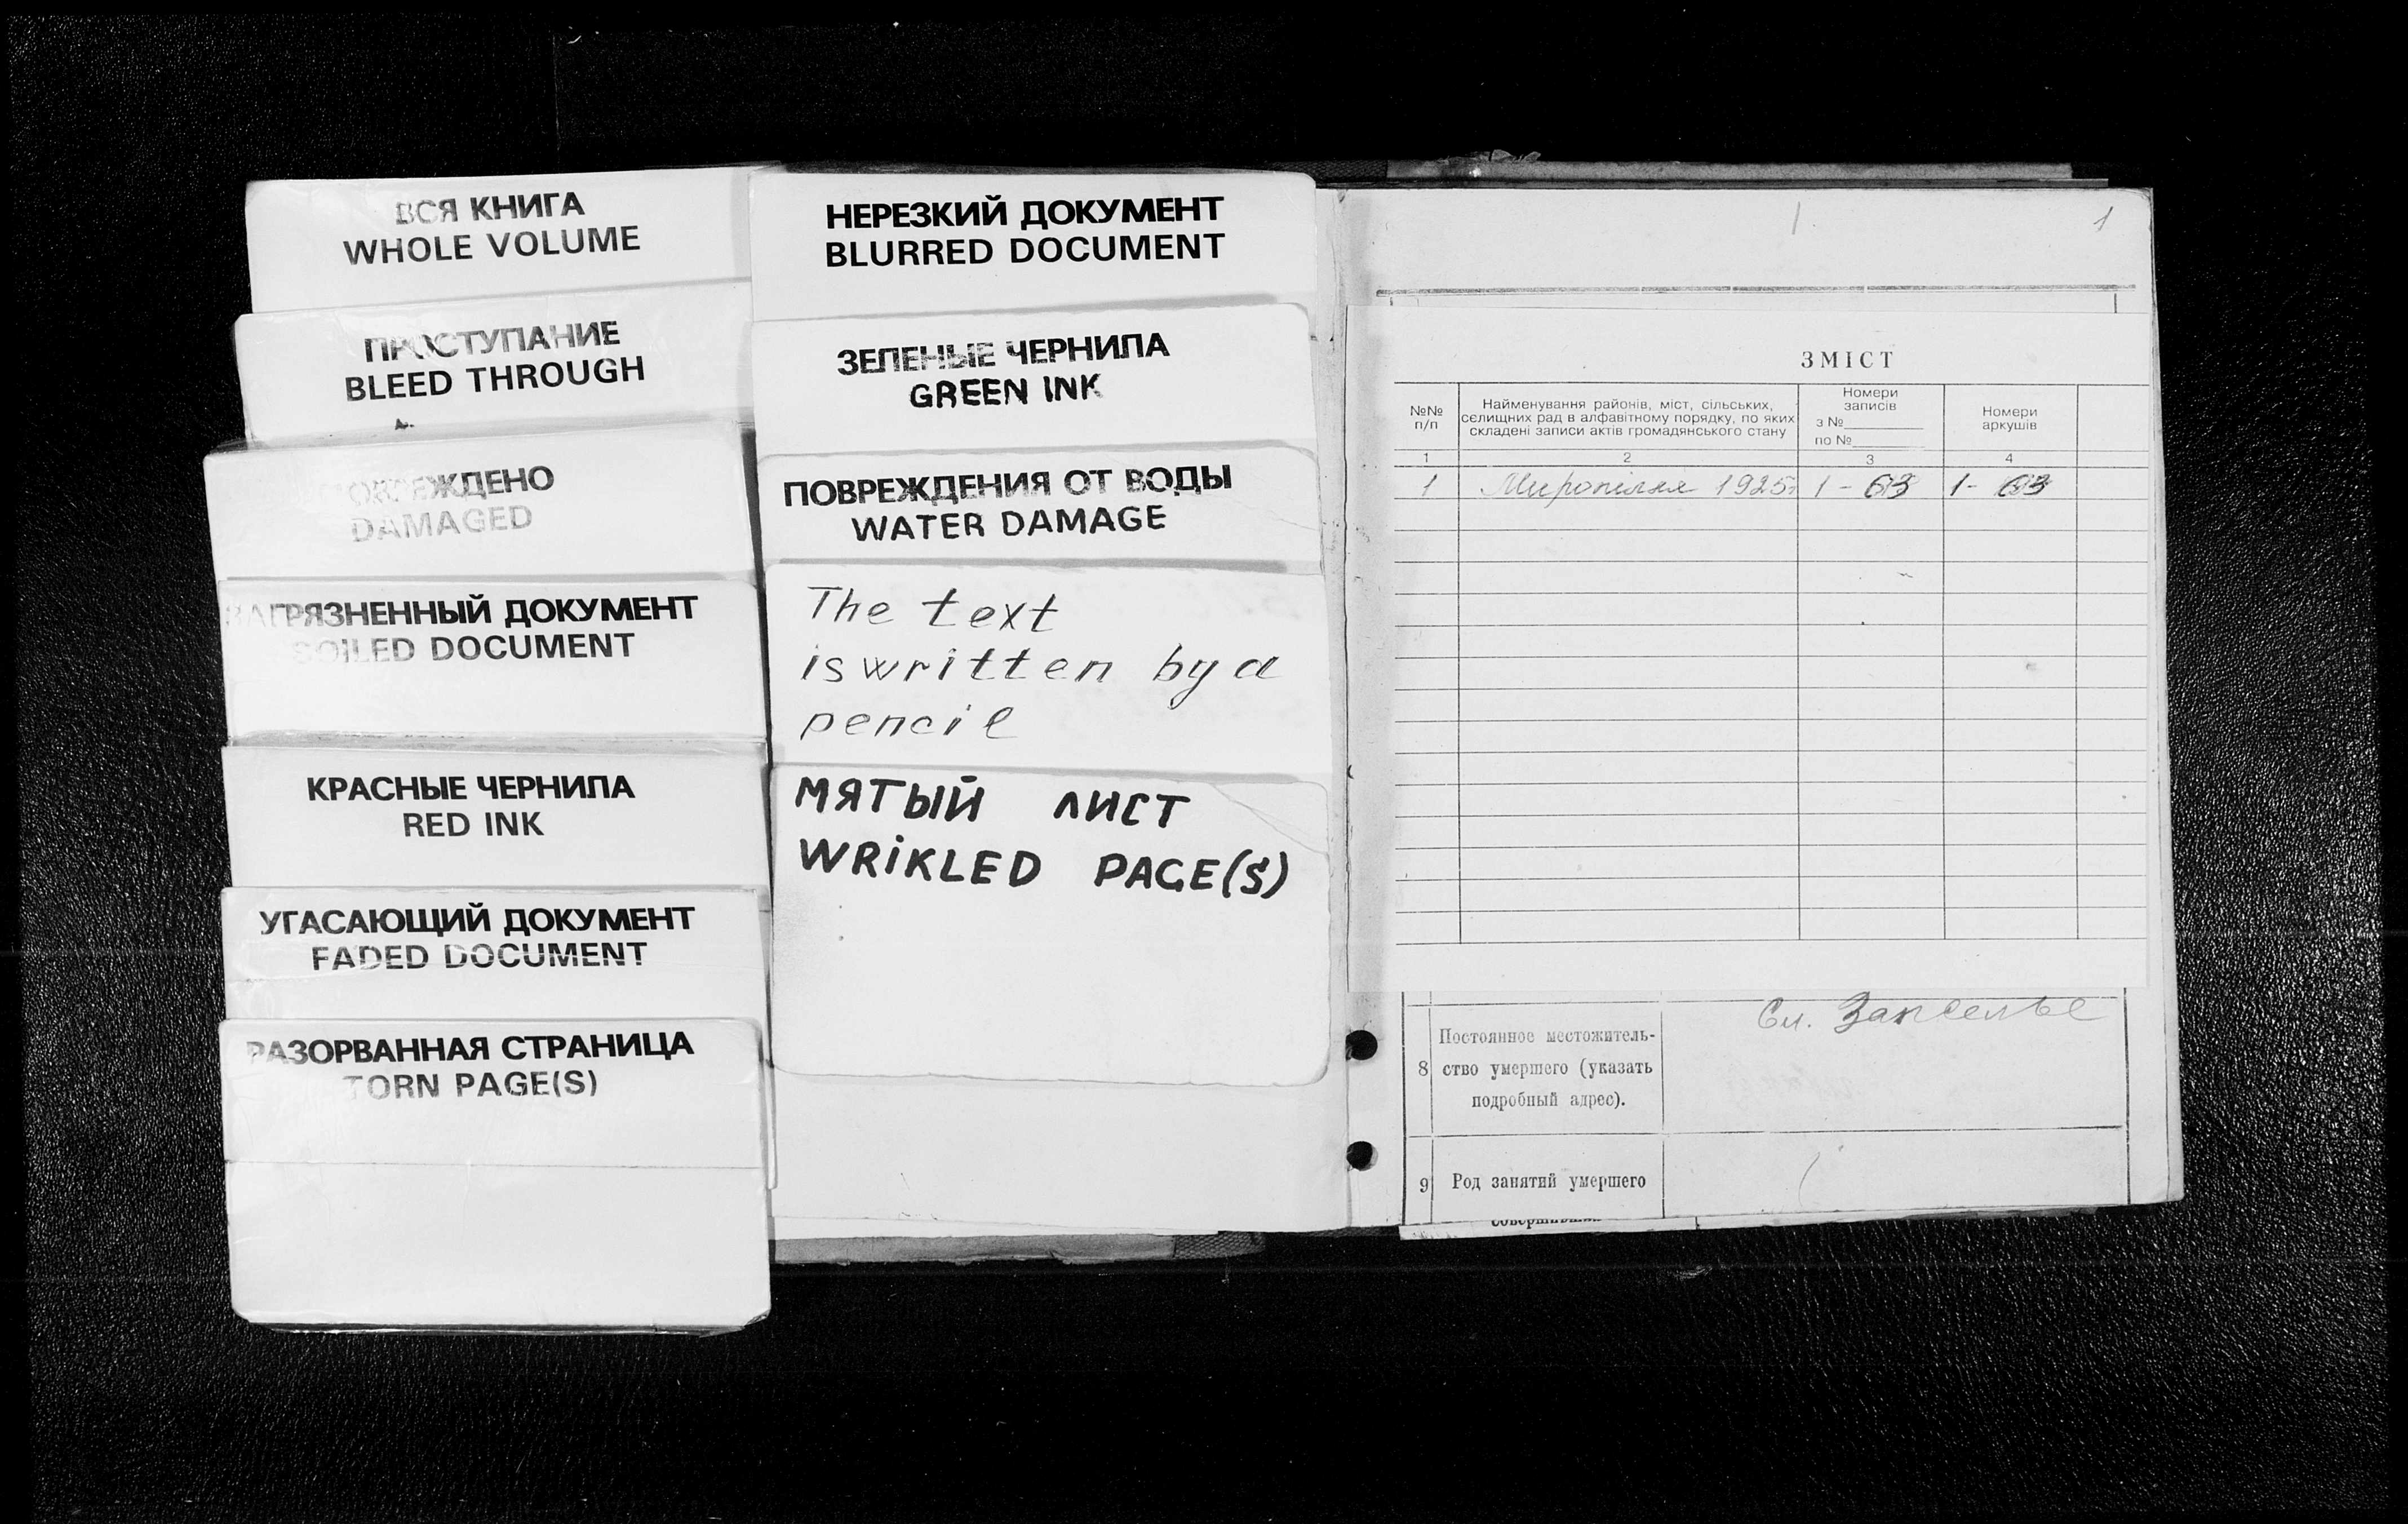 ВСЯ КНИГА
WHOLE VOLUME
ПРОСТУПАНИЕ
BLEED THROUGH
ПОВРЕЖДЕНО
DAMAGED
ЗАГРЯЗНЕННЫЙ ДОКУМЕНТ
SOILED DOCUMENT
КРАСНЫЕ ЧЕРНИЛА
RED INK
УГАСАЮЩИЙ ДОКУМЕНТ
FADED DOCUMENT
РАЗОРВАННАЯ СТРАНИЦА
TORN PAGE(S)
НЕРЕЗКИЙ ДОКУМЕНТ
BLURRED DOCUMENT
ЗЕЛЕНЫЕ ЧЕРНИЛА
GREEN INK
ПОВРЕЖДЕНИЯ ОТ ВОДЫ
WATER DAMAGE
The text
is written by a
pencil
МЯТЫЙ ЛИСТ
WRiKLED PAGE(S)
1
ЗМІСТ
№№
п/п
Найменування районів, міст, сільських,
селищних рад в алфавітному порядку, по яких
складені записи актів громадянського стану
Номери
записів
з №
по №
Номери
аркушів
1 2 3 4
1 Миропілля 1925 1 - 63 1 - 63
Сл. Запселье
8 Постоянное местожитель-
ство умершего (указать
подробный адрес).
9 Род занятий умершего